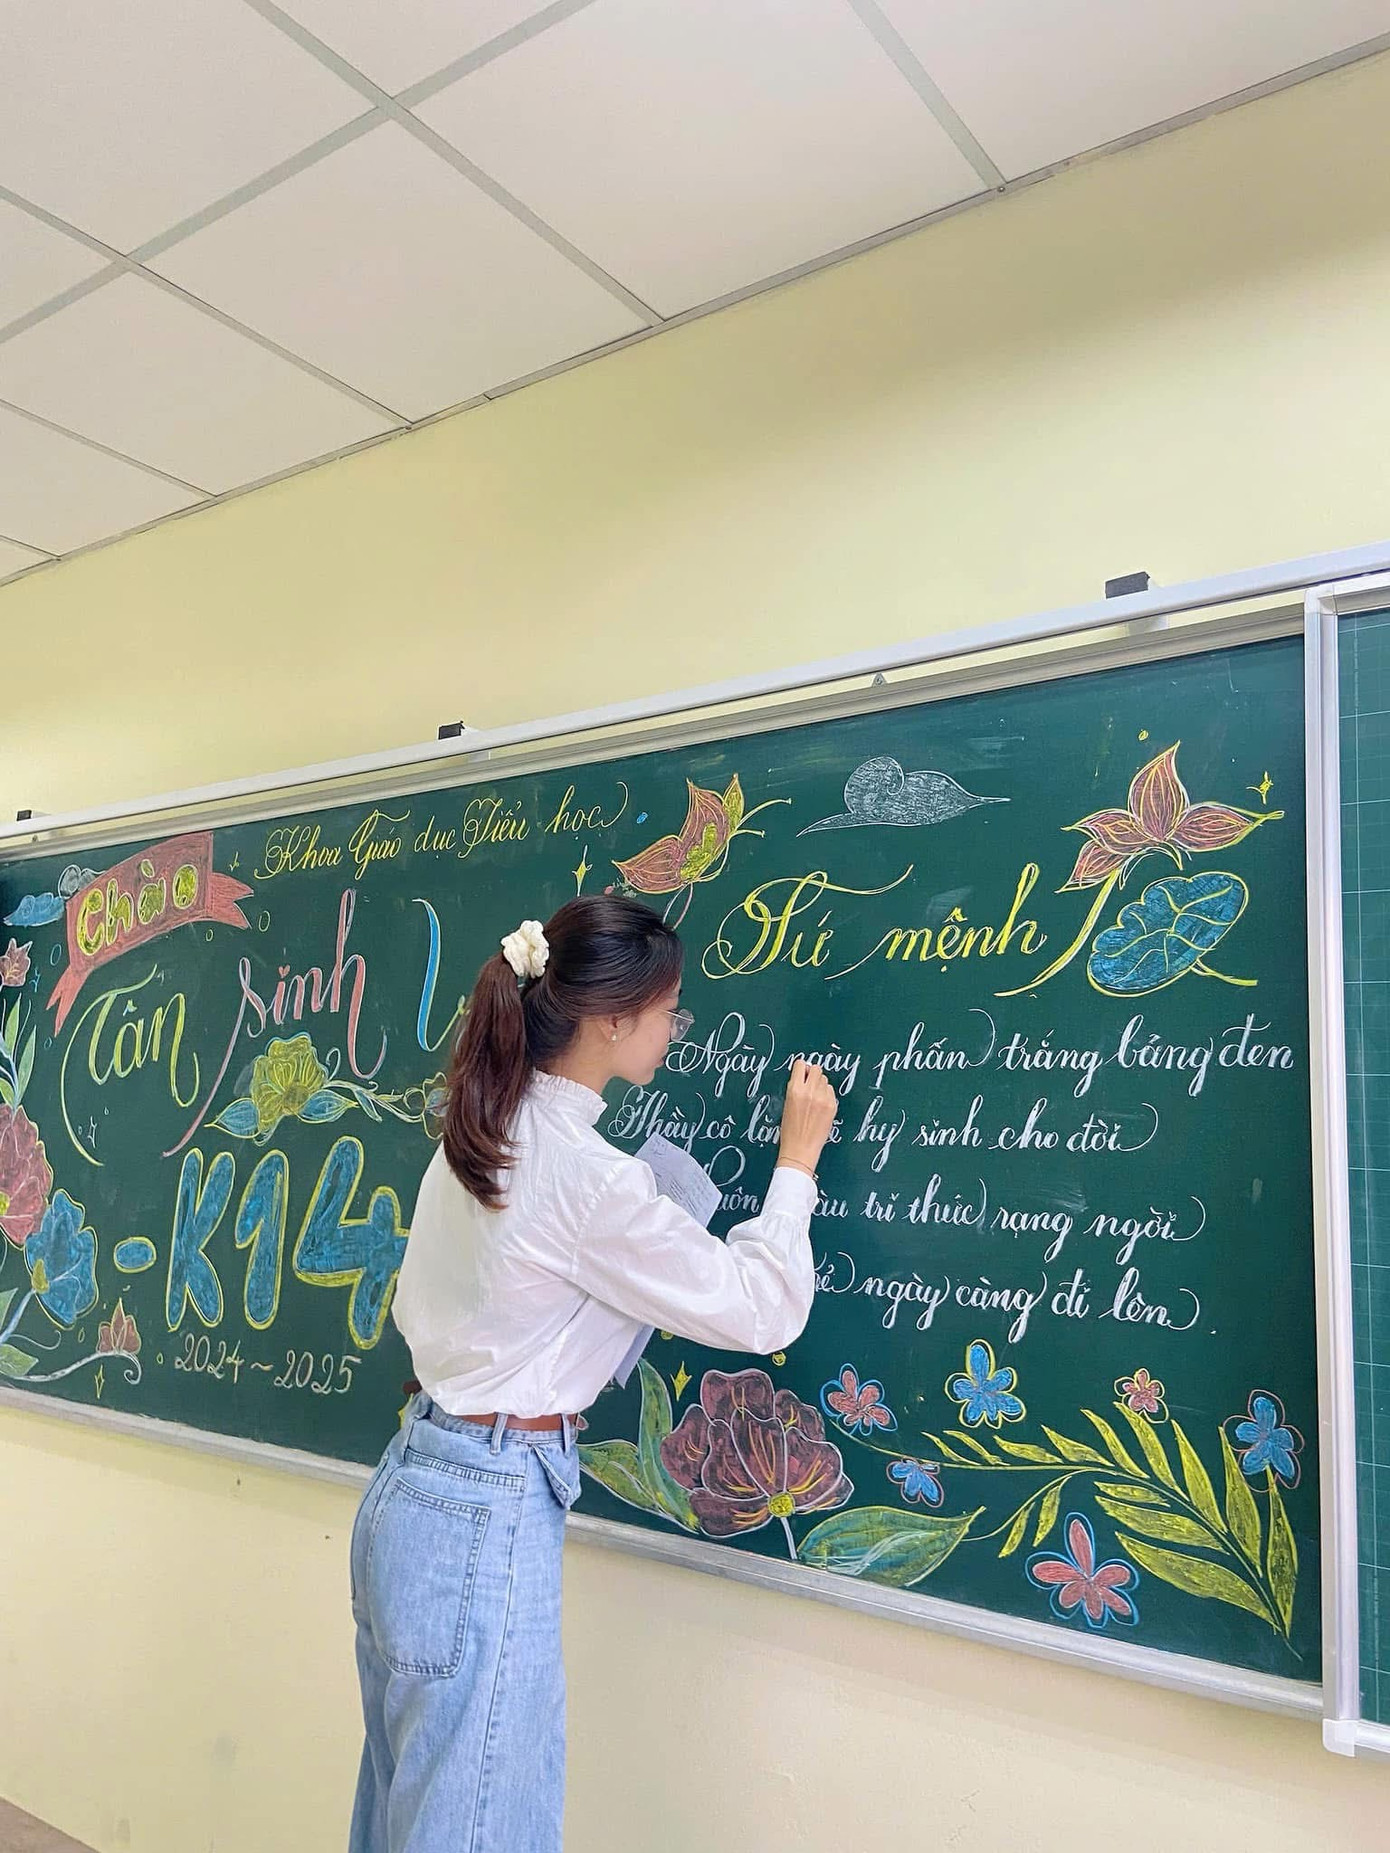 Khoa Giáo dục Tiểu học
Chào
Tân sinh v
-K14
2024~2025
Sứ mệnh
Ngày ngày phấn trắng bảng đen
Thầy cô hy sinh cho đời
tri thức rạng ngời
ngày càng đi lên.